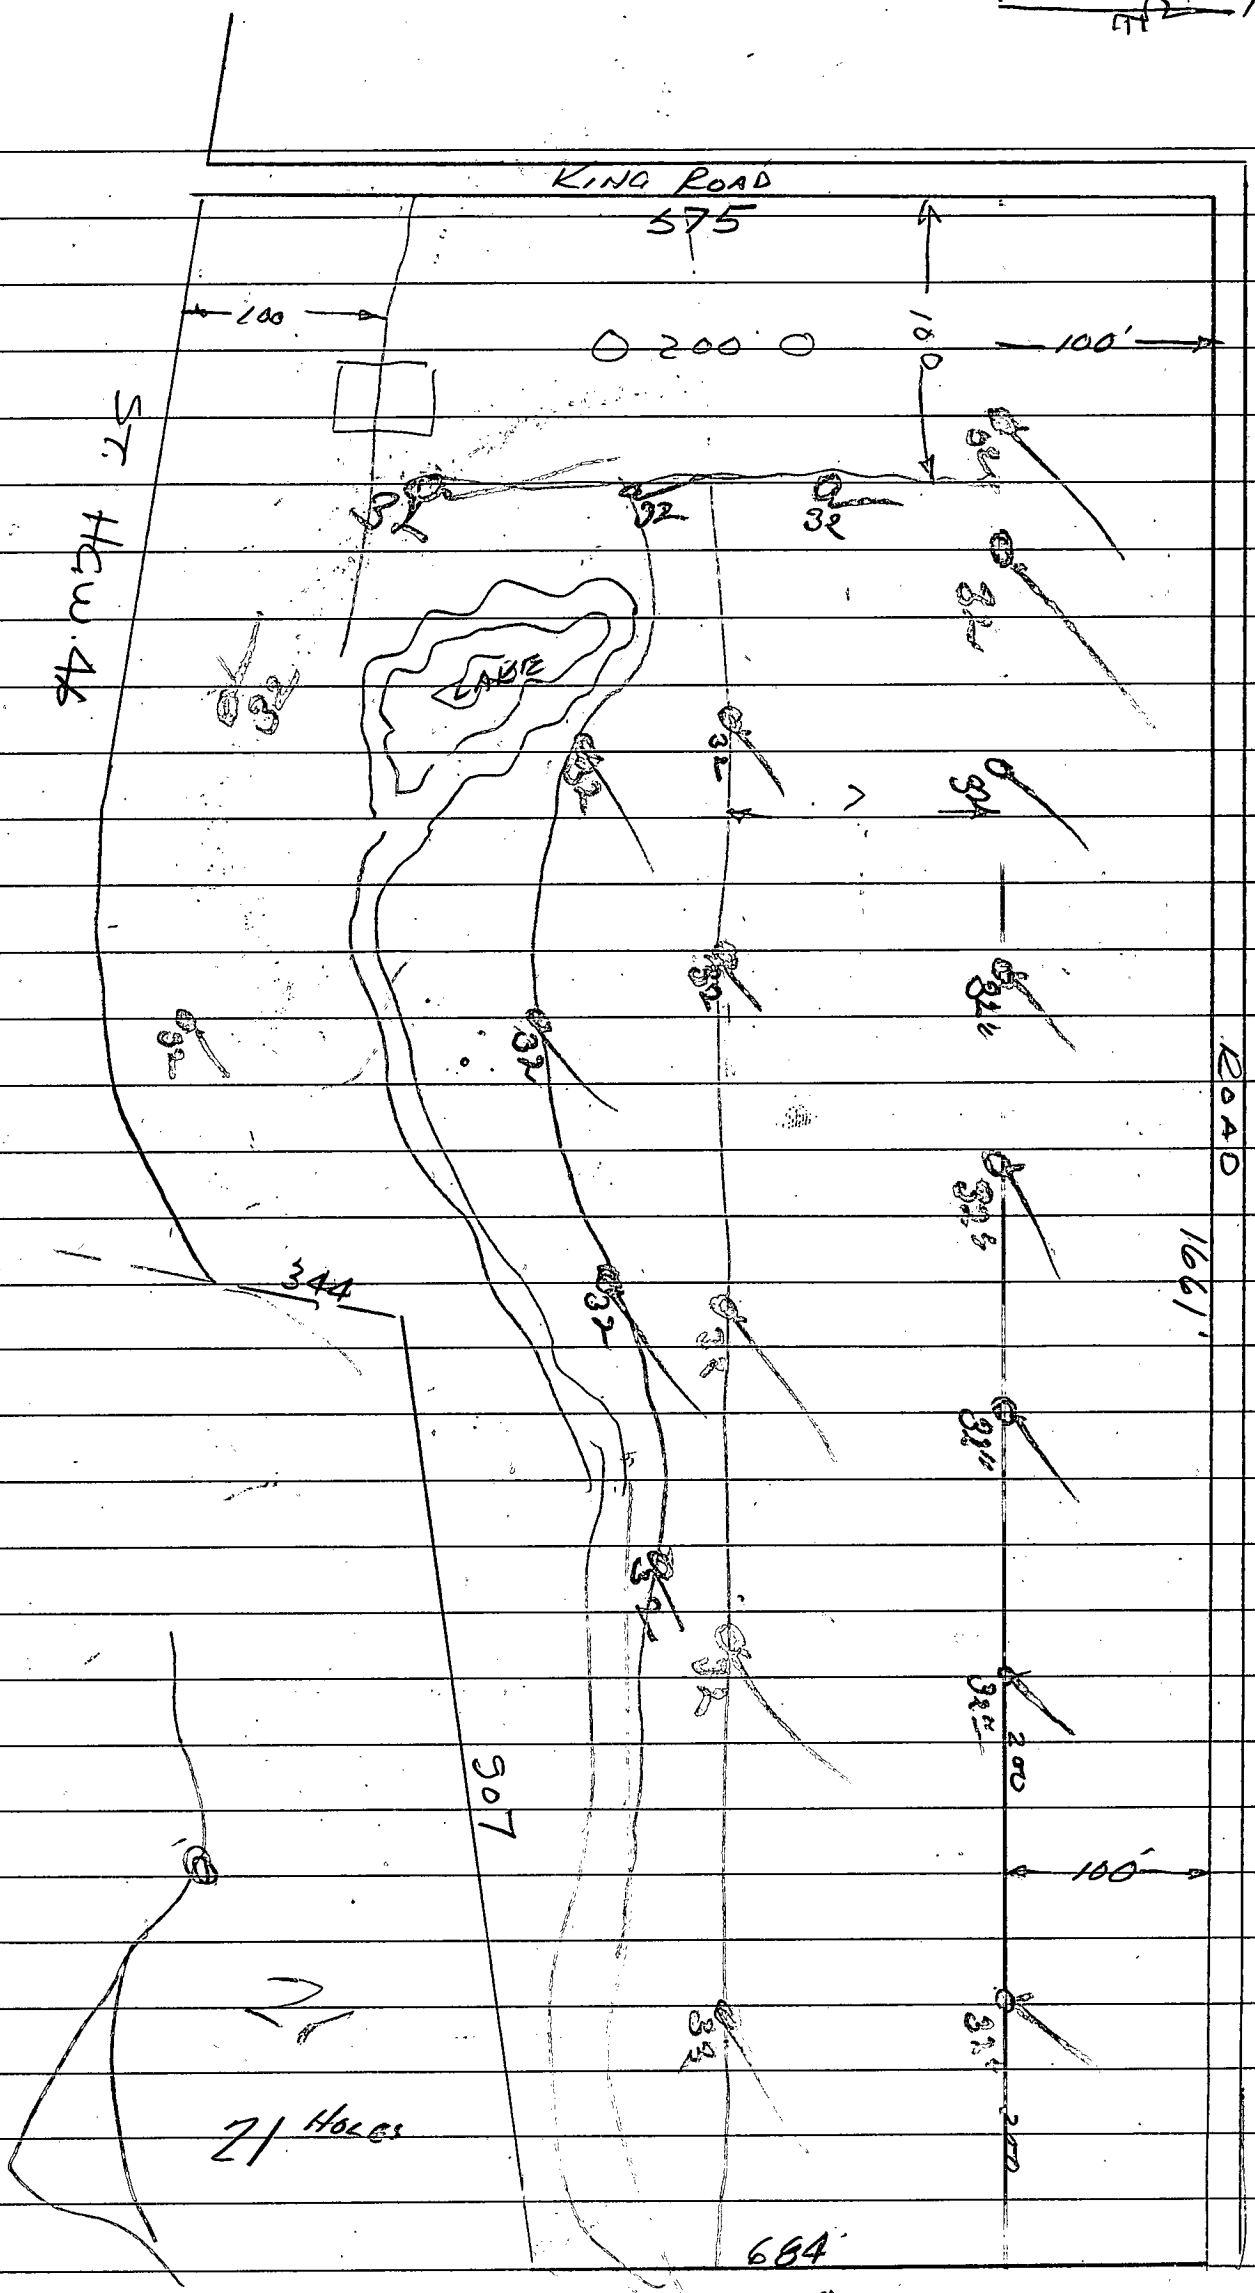 KING ROAD
575
200
O 200 O
180
100'
ST. HGW. 4
32
32
32
32
32
LAKE
32
32
32
32
32
32
32"
32
ROAD
1661'
344
32
32
32"
32
32
32"
200
907
100'
32
32"
21 HOLES
200
684'